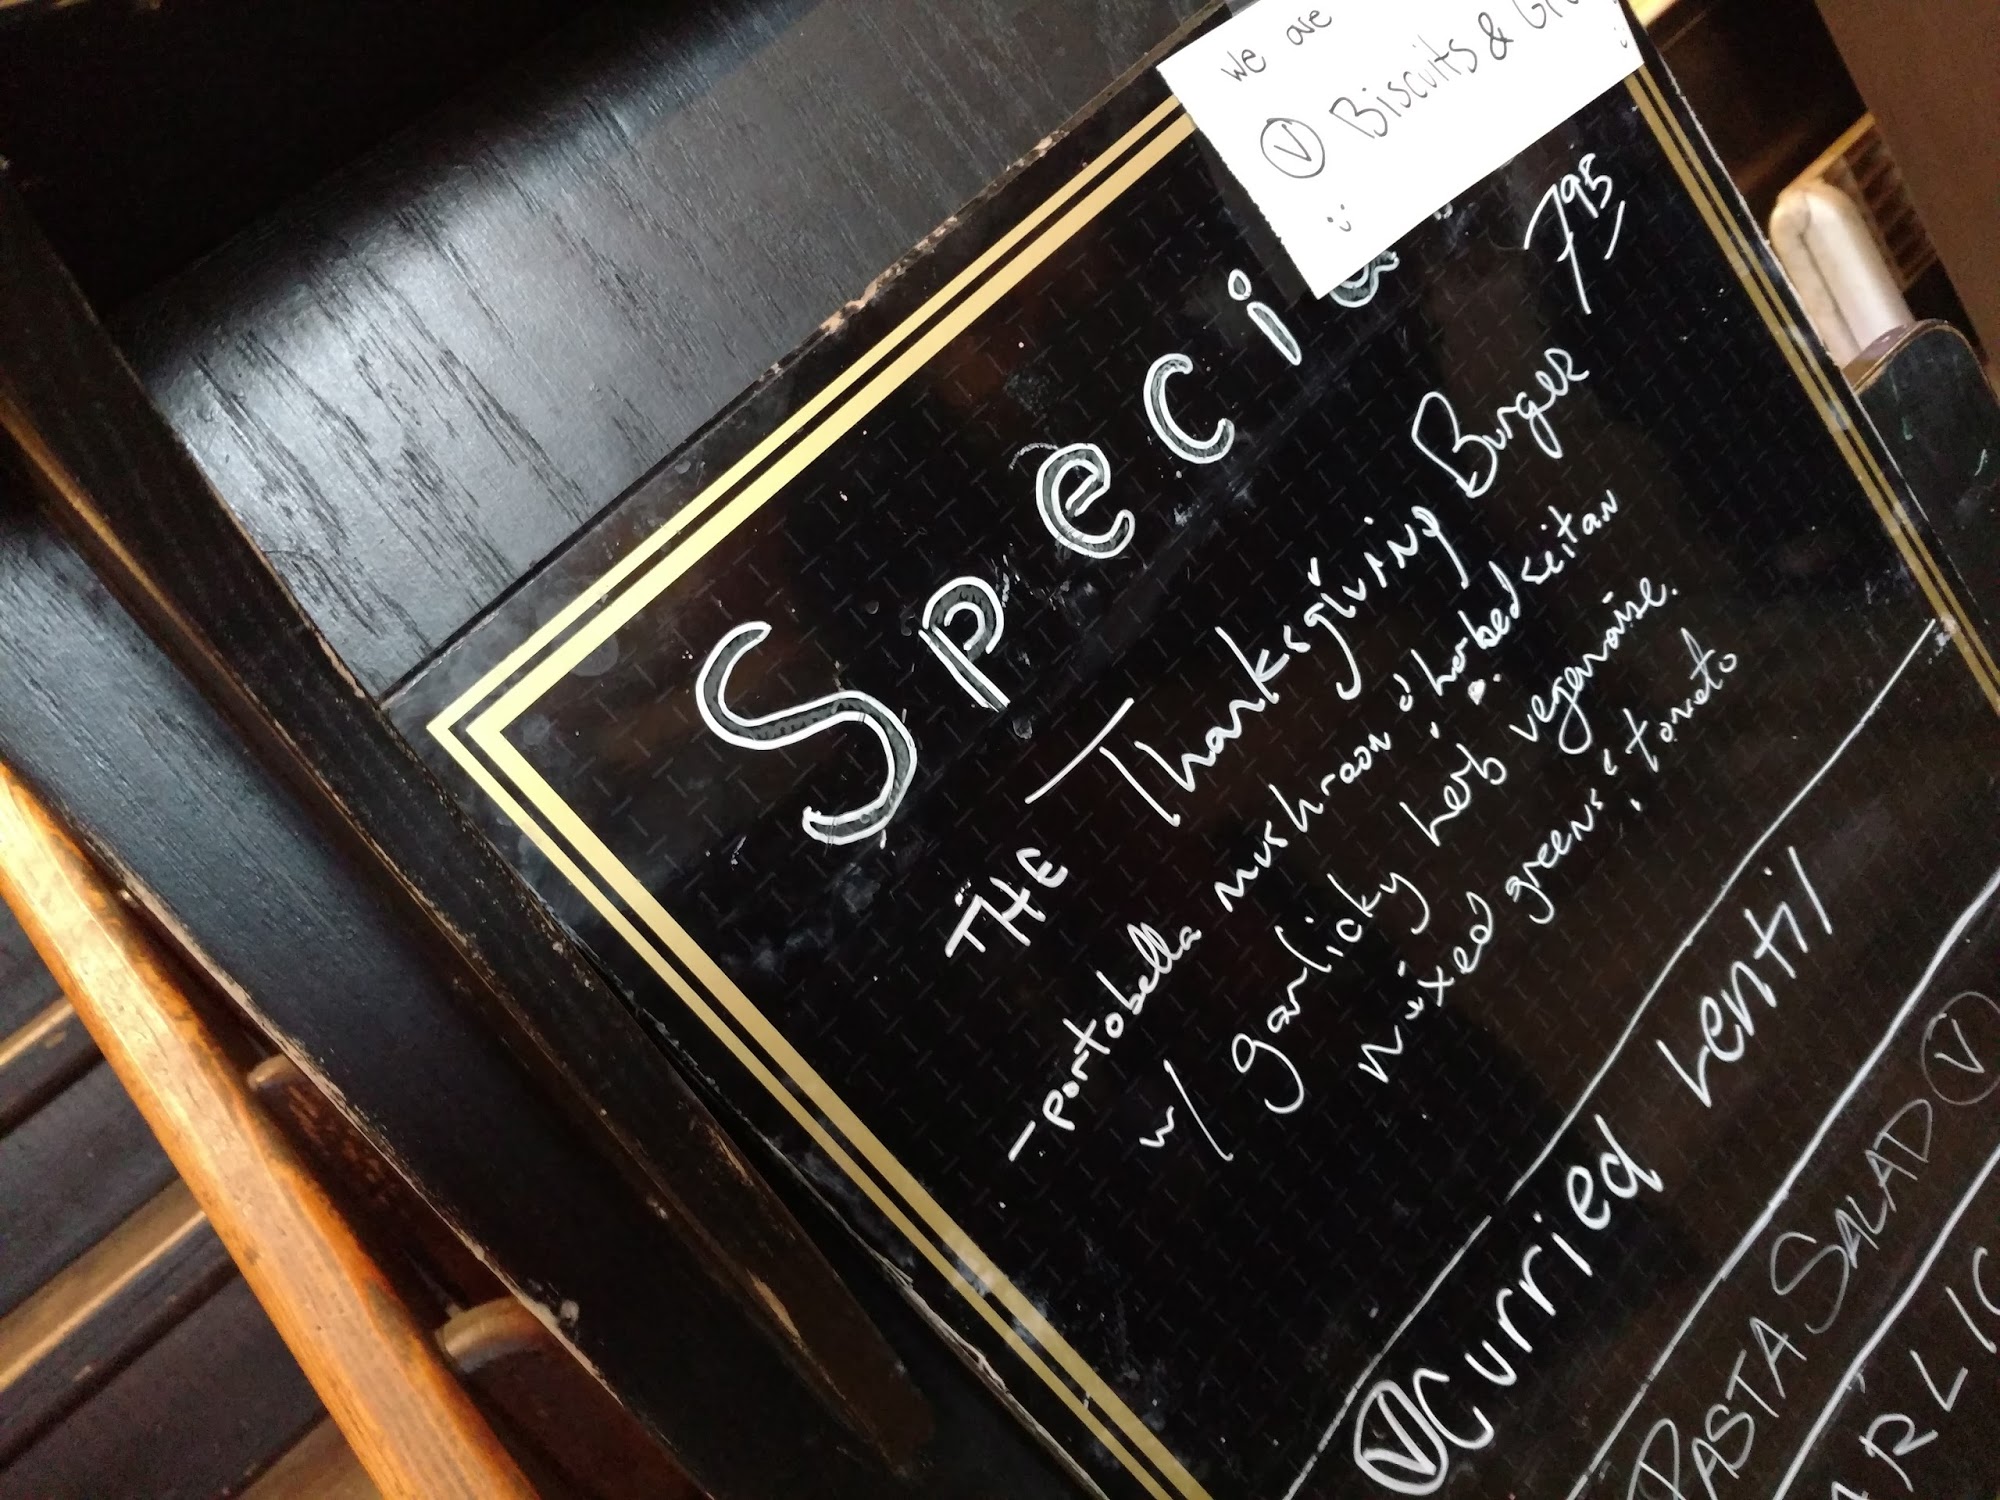 We are
Ⓥ Biscuits &
Specia
7.95
THE Thanksgiving Burger
- portobella mushroom & herbed seitan
w/ garlicky herb vegenaise.
mixed greens & tomato
Ⓥ Curried Lentil
PASTA SALAD Ⓥ
ARLIC